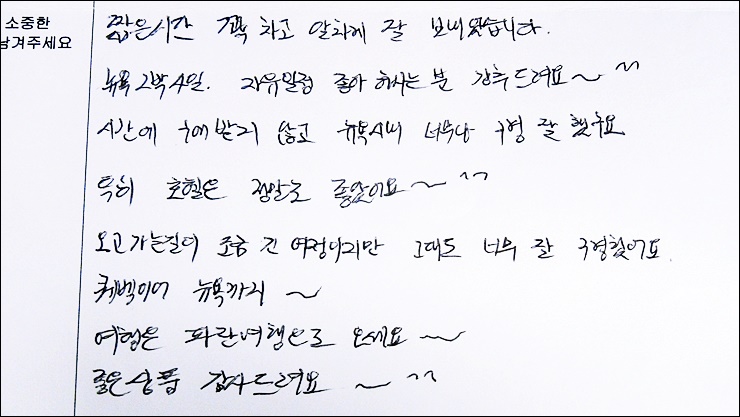 소중한
남겨주세요
짧은시간 꽉 차고 알차게 잘 보내왔습니다.
뉴욕 2박4일. 자유일정 좋아 하시는 분 강추드려요~ ^^
시간에 구애받지 않고 뉴욕시내 너무나 구경 잘 했구요
특히 호텔은 정말로 좋았어요~ ^^
오고가는길이 조금 긴 여정이지만 그래도 너무 잘 구경했어요.
퀘벡이어 뉴욕까지 ~
여행은 파란여행으로 오세요 ~
좋은상품 감사드려요 ~ ^^